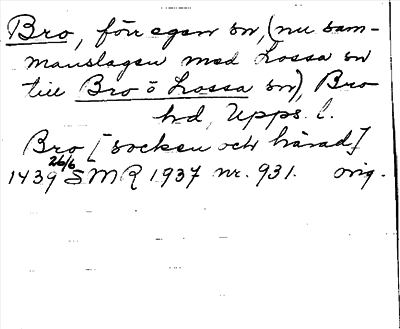 Bro, förr egen sn, (nu sam-
manslagen med Lossa sn
till Bro o Lossa sn), Bro
hd, Upps. l.
Bro [socken och härad]
1439 26/6 SMR 1937 nr. 931. orig.